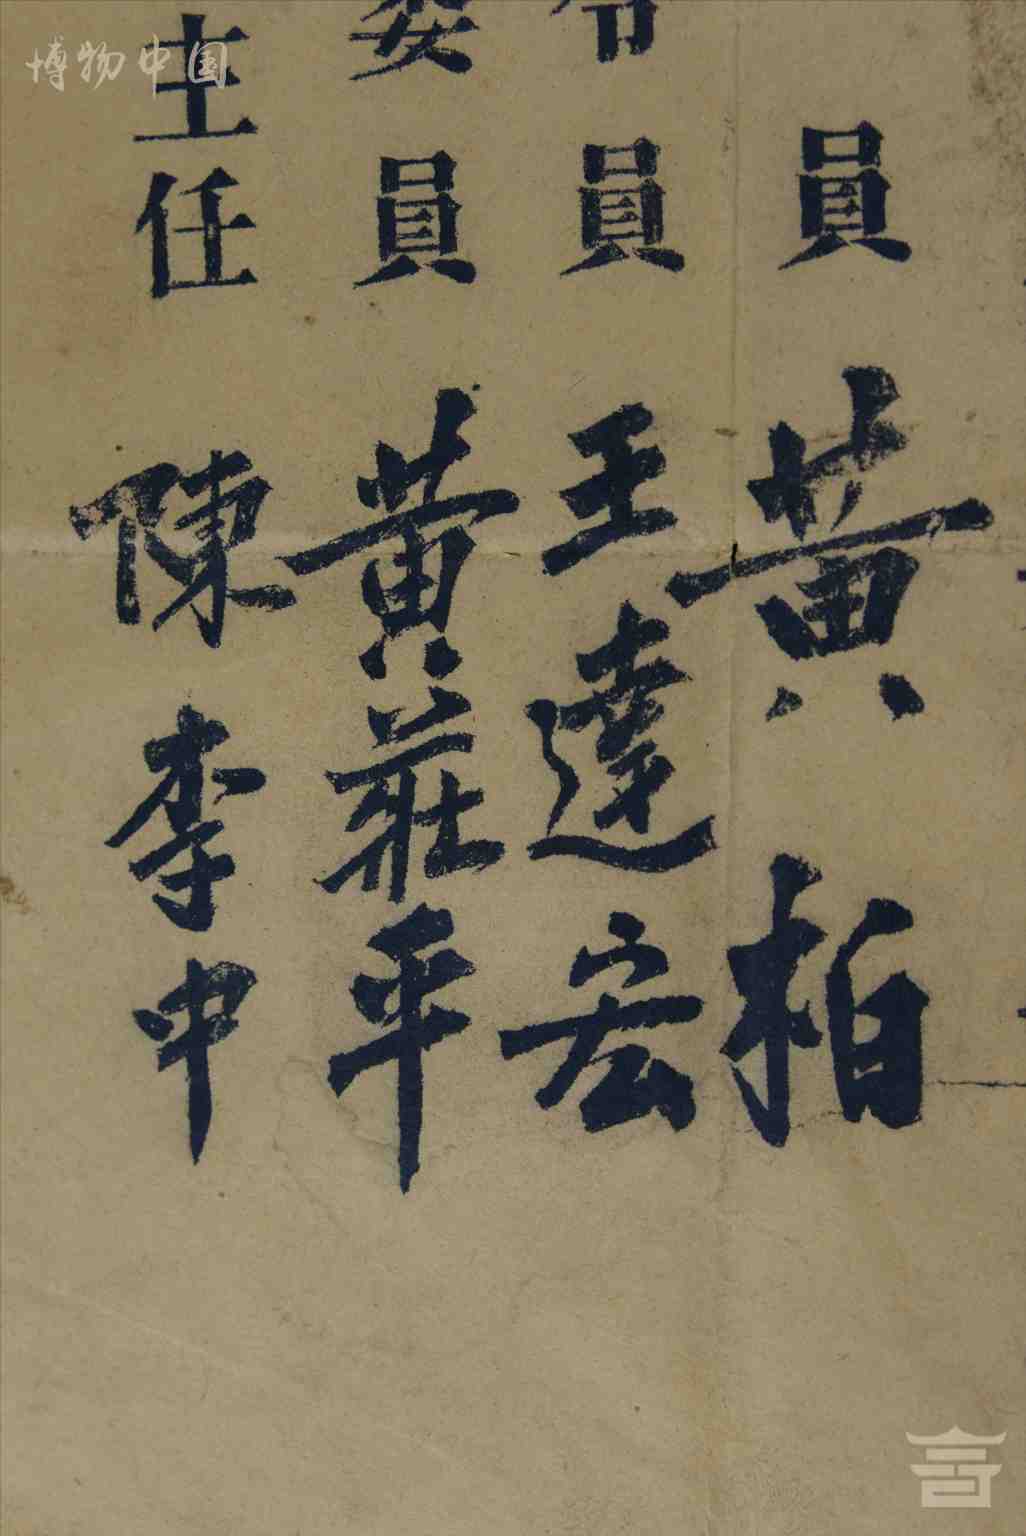 員 黃柏
令員 王達宏
委員 黃莊平
主任 陳李中
博物中国